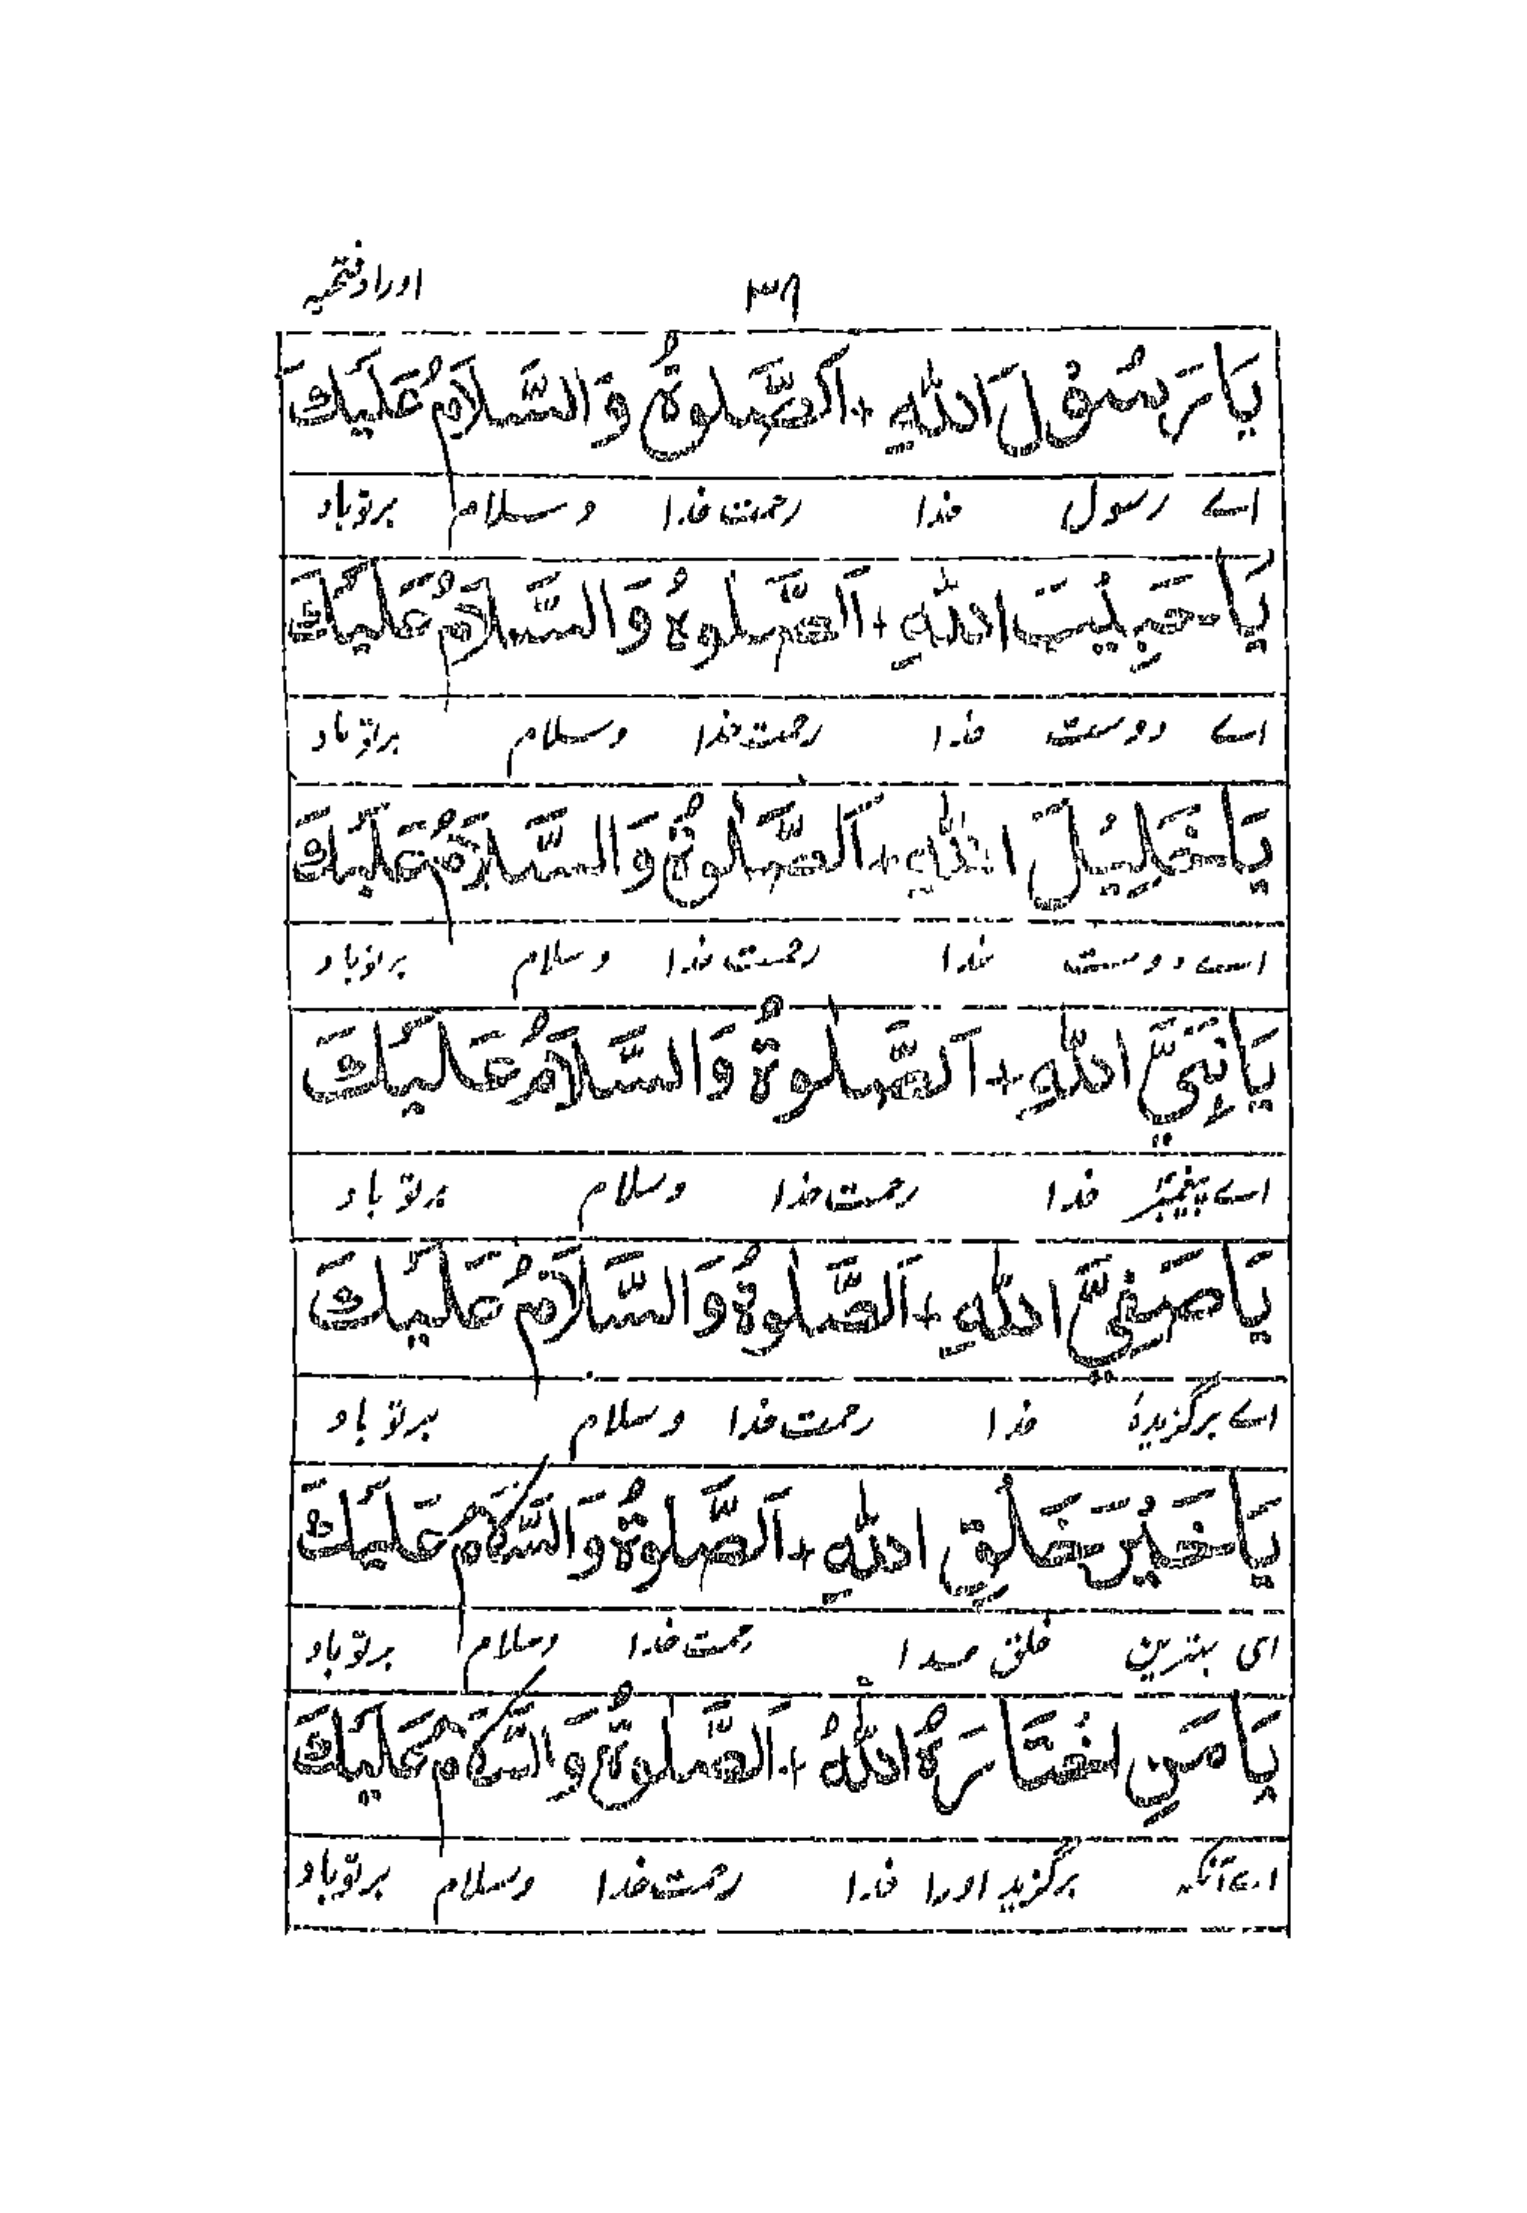 ۳۹ اوراد فتحیہ
يَا رَسُوْلَ اللّٰهِ + اَلصَّلٰوةُ وَالسَّلَامُ عَلَيْكَ
اے رسول خدا رحمت خدا و سلام بر تو باد
يَا حَبِيْبَ اللّٰهِ + اَلصَّلٰوةُ وَالسَّلَامُ عَلَيْكَ
اے دوست خدا رحمت خدا و سلام بر تو باد
يَا خَلِيْلَ اللّٰهِ + اَلصَّلٰوةُ وَالسَّلَامُ عَلَيْكَ
اے دوست خدا رحمت خدا و سلام بر تو باد
يَا نَبِيَّ اللّٰهِ + اَلصَّلٰوةُ وَالسَّلَامُ عَلَيْكَ
اے پیغمبر خدا رحمت خدا و سلام بر تو باد
يَا صَفِيَّ اللّٰهِ + اَلصَّلٰوةُ وَالسَّلَامُ عَلَيْكَ
اے برگزیدۂ خدا رحمت خدا و سلام بر تو باد
يَا خَيْرَ خَلْقِ اللّٰهِ + اَلصَّلٰوةُ وَالسَّلَامُ عَلَيْكَ
ای بهترین خلق خدا رحمت خدا و سلام بر تو باد
يَا مَنِ اخْتَارَهُ اللّٰهُ + اَلصَّلٰوةُ وَالسَّلَامُ عَلَيْكَ
اے آنکہ برگزید اورا خدا رحمت خدا و سلام بر تو باد